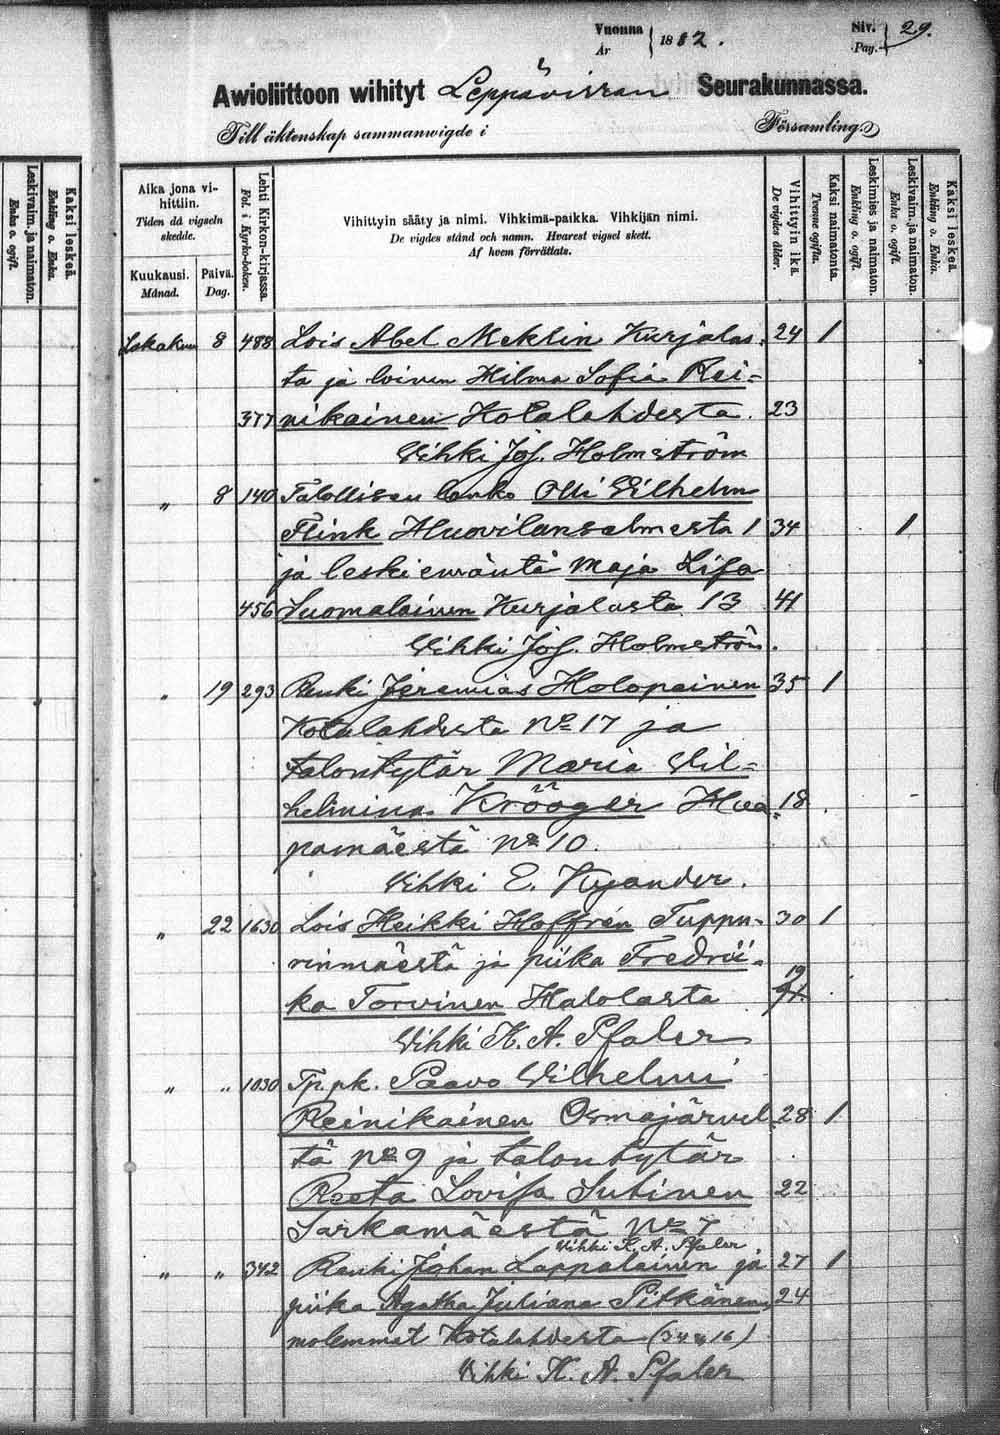 Vuonna
År
1882.
Siv.
Pag.
29.
Awioliittoon wihityt Leppävirran Seurakunnassa.
Till äktenskap sammanwigde i Församling
Leskivaim. ja naimaton.
Enka o. ogift.
Kaksi leskeä.
Enkling o. Enka.
Aika jona vihittiin.
Tiden då vigseln skedde.
Kuukausi.
Månad.
Päivä.
Dag.
Lehti Kirkon-kirjassa.
Fol. i Kyrko-boken.
Vihittyin sääty ja nimi. Vihkimä-paikka. Vihkijän nimi.
De vigdes stånd och namn. Hvarest vigsel skett.
Af hvem förrättats.
Vihittyin ikä.
De vigdes ålder.
Kaksi naimatonta.
Tvenne ogifta.
Leskimies ja naimaton.
Enkling o. ogift.
Leskivaim. ja naimaton.
Enka o. ogift.
Kaksi leskeä.
Enkling o. Enka.
Lokakuu 8 488 Lois Abel Meklin Kurjalas- 24 1
ta ja loinen Hilma Sofia Rei-
377 nikainen Kotalahdesta. 23
Vihki Joh. Holmström
" 8 140 Talollisen lanko Olli Vilhelm
Flink Kuovilansalmesta 1 34 1
ja leskiemäntä Maja Lisa
456 Suomalainen Kurjalasta 13 41
Vihki Joh. Holmström.
" 19 293 Renki Jeremias Holopainen 35 1
Kotalahdesta No 17 ja
talontytär Maria Vil-
helmina Krööger Haa- 18
pamäestä No 10.
Vihki E. Kyander.
" 22 1630 Lois Heikki Hoffrén Tuppu- 30 1
rinmäestä ja piika Fredrii-
ka Torvinen Halolasta 19
Vihki K. A. Pfaler
" " 1030 Tp. pk. Paavo Vilhelmi
Reinikainen Osmajärvel- 28 1
tä No 9 ja talontytär
Reeta Lovisa Sutinen 22
Sarkamäestä No 7
Vihki K. A. Pfaler
" " 342 Renki Johan Lappalainen ja 27 1
piika Agatha Juliana Pitkänen, 24
molemmat Kotalahdesta (34 16)
Vihki K. A. Pfaler